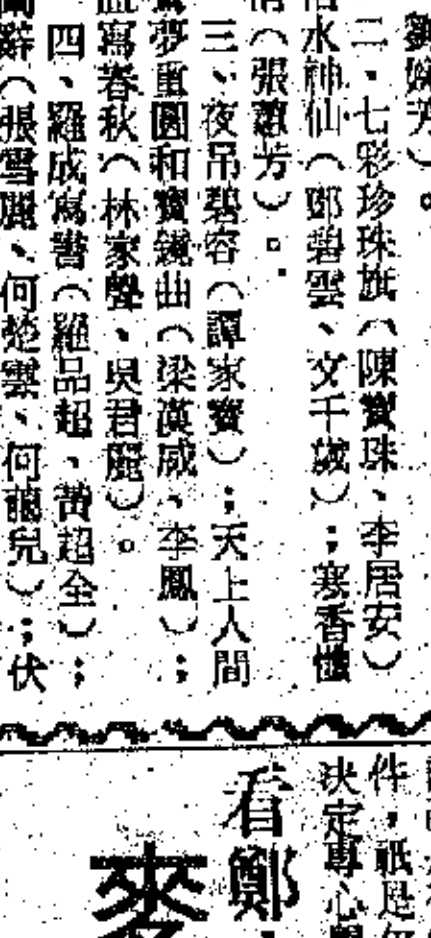 劉婉芳）。
二、七彩珍珠旗（陳寶珠、李居安）
水神仙（鄧碧雲、文千歲）；寒香憶
情（張蕙芳）。
三、夜吊碧容（譚家寶）；天上人間
夢重圓和寶鏡曲（梁漢威、李鳳）；
血寫春秋（林家聲、吳君麗）。
四、羅成寫書（羅品超、黃超全）；
辭（張雪麗、何楚雲、何萠兒）；伏
件，祇是
決定專心
看鄭
麥